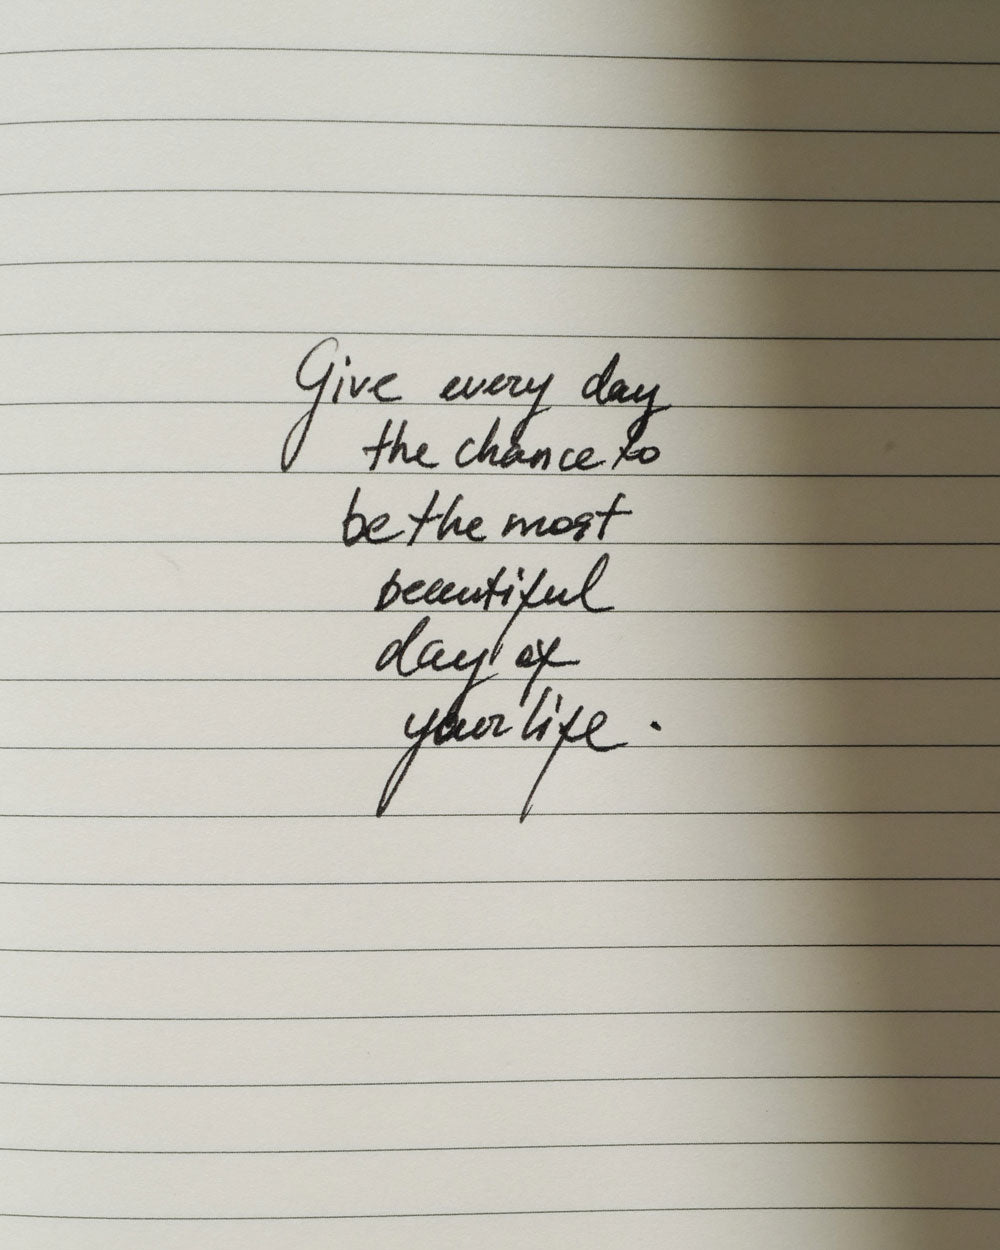 Give every day
the chance to
be the most
beautiful
day of
your life.